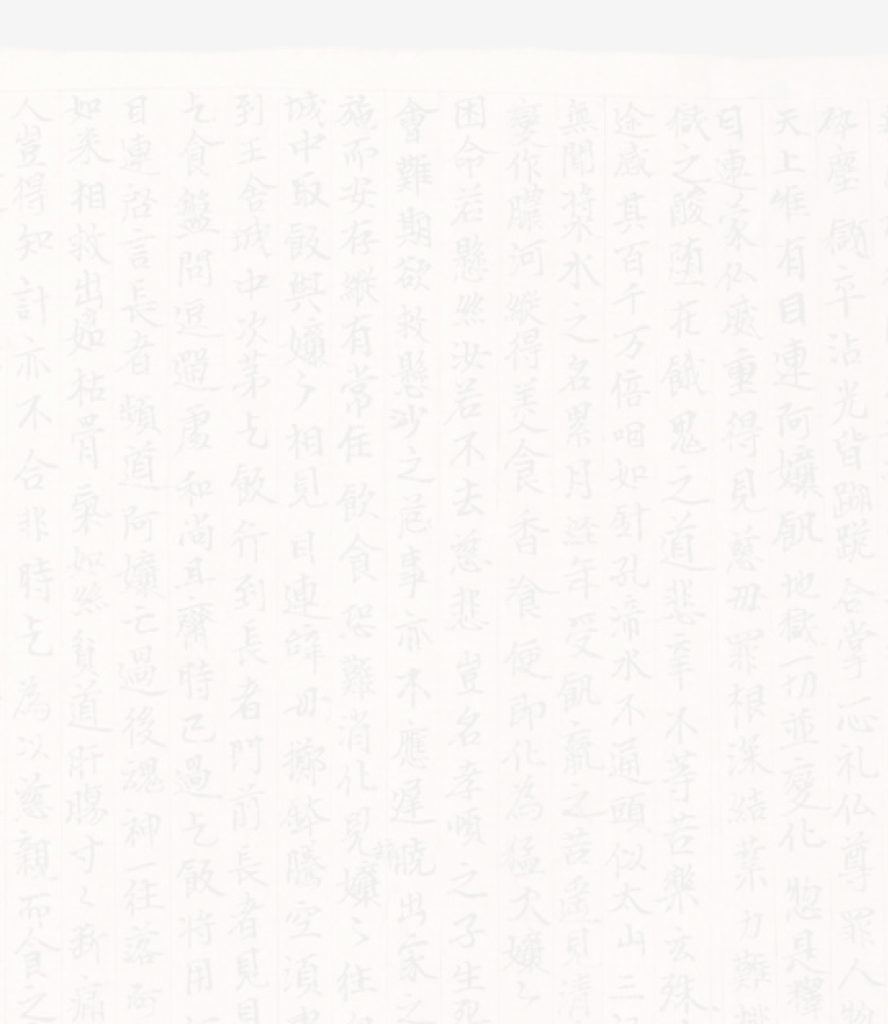 碎塵 獄卒沾光皆𨂍蹤合掌一心礼仏尊罪人
天上唯有目連阿孃飢地獄一切並變化惣是釋
目連家仏威重得見慈母罪根深結業力難
獄之酸堕在餓鬼之道悲辛不等苦樂玄殊
途咸其百千万倍咽如針孔渧水不通頭似太山三
無聞漿水之名累月經年受飢羸之苦遙見清
變作膿河縱得美食香飡便即化為猛火孃〻
困命若懸絲汝若不去慈悲豈名孝順之子生死
會難期欲救懸沙之危事亦不應遲晚出家之
施而安存縱有常住飲食恐難消化見孃〻往
城中取飯與孃〻相見目連辞母擲鉢騰空須
到王舍城中次第乞飯行到長者門前長者見目
乞食盤問逗遛處和尚且齋時已過乞飯將用
目連啓言長者頻道阿孃亡過後魂神一往落阿
如來相救出如枯骨氣如絲貧道肝腸寸〻断痛
人豈得知計亦不合非時乞為以慈親而食之